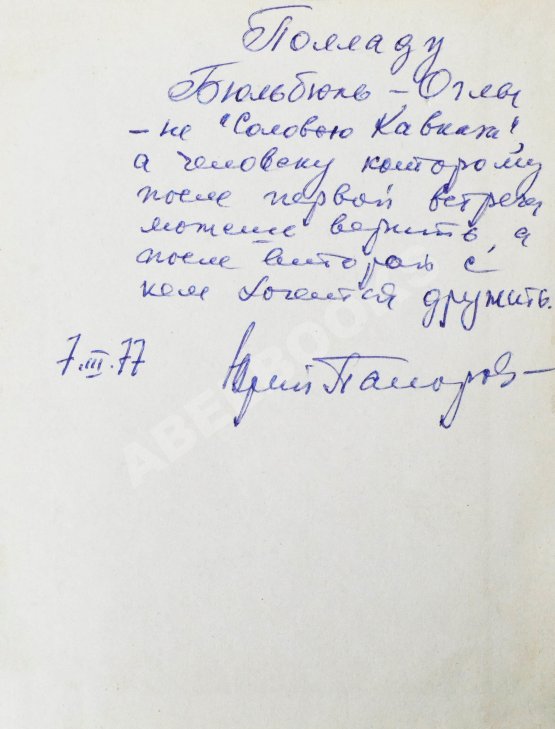 Полладу
Бюльбюль-Оглы
- не "Соловью Кавказа",
а человеку которому
после первой встречи
можешь верить, а
после второй с
кем хочется дружить.
7.III.77 Юрий